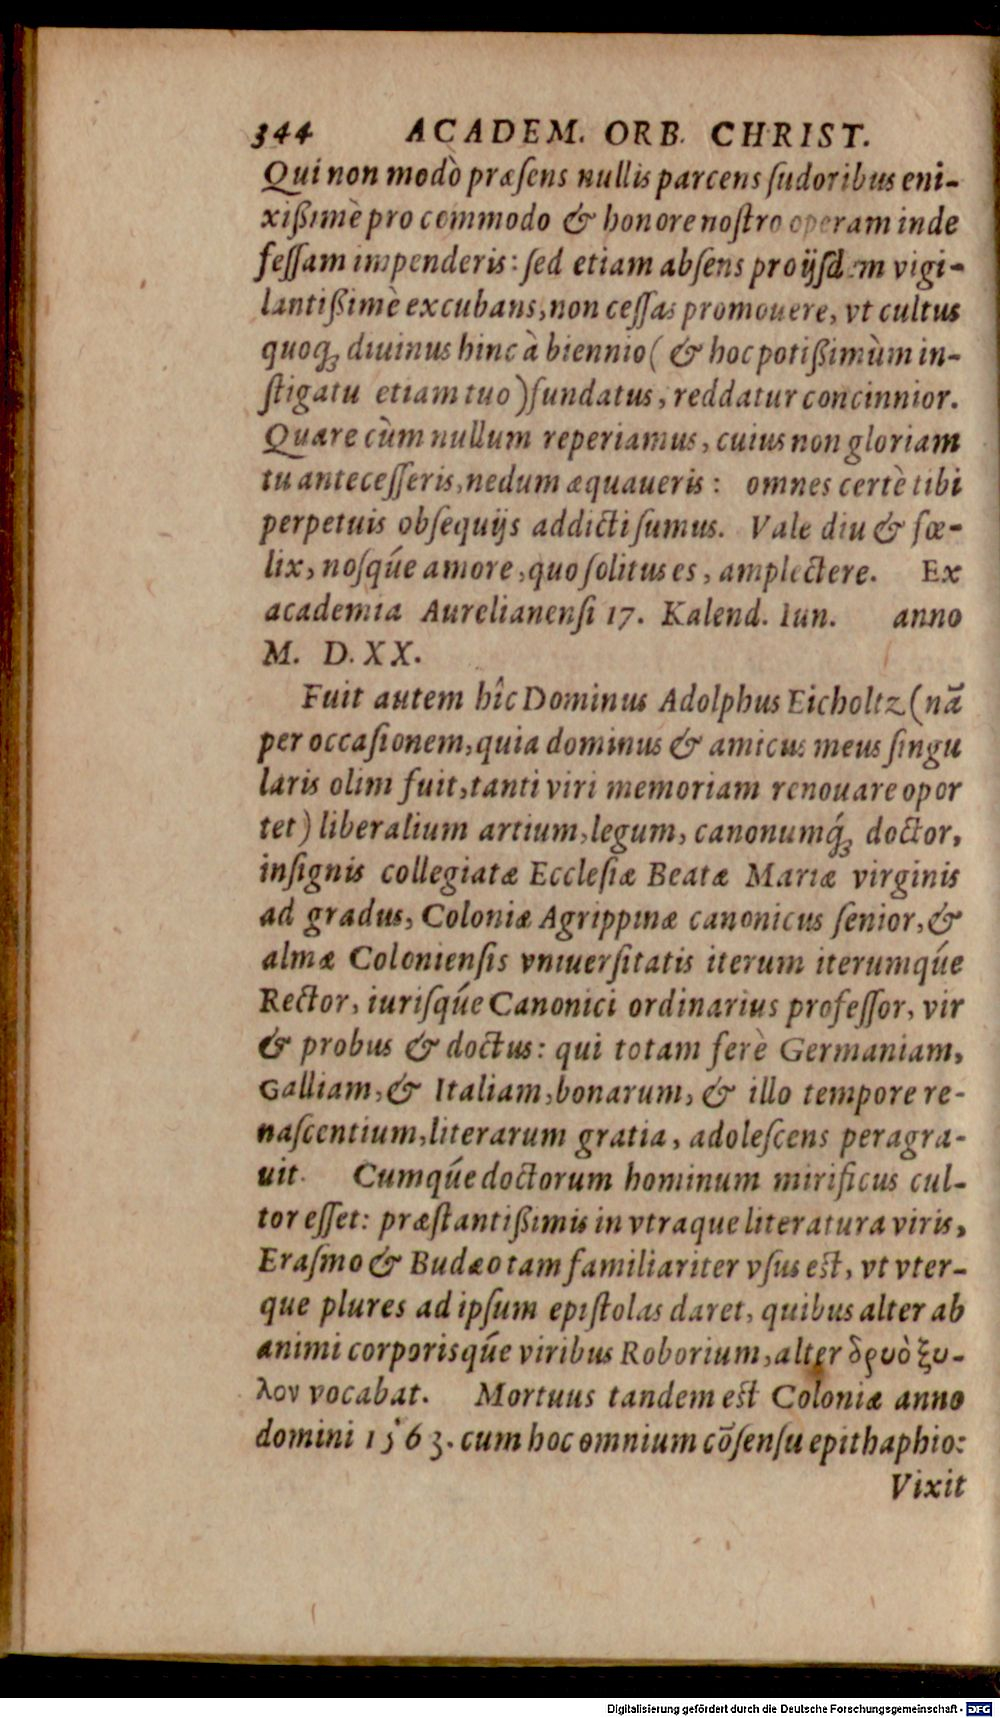 344 ACADEM. ORB. CHRIST.
Qui non modò præſens nullis parcens ſudoribus eni-
xißimè pro commodo & honore noſtro operam inde
feſſam impenderis: ſed etiam abſens pro ijſdem vigi-
lantißimè excubans, non ceſſas promouere, vt cultus
quoq; diuinus hinc à biennio ( & hoc potißimùm in-
ſtigatu etiam tuo ) fundatus, reddatur concinnior.
Quare cùm nullum reperiamus, cuius non gloriam
tu anteceſſeris, nedum æquaueris: omnes certè tibi
perpetuis obſequijs addicti ſumus. Vale diu & fœ-
lix, noſq́ue amore, quo ſolitus es, amplectere. Ex
academia Aurelianenſi 17. Kalend. Iun. anno
M. D. XX.
Fuit autem hîc Dominus Adolphus Eicholtz (nã
per occaſionem, quia dominus & amicus meus ſingu
laris olim fuit, tanti viri memoriam renouare opor
tet ) liberalium artium, legum, canonumq́; doctor,
inſignis collegiatæ Eccleſiæ Beatæ Mariæ virginis
ad gradus, Coloniæ Agrippinæ canonicus ſenior, &
almæ Colonienſis vniuerſitatis iterum iterumq́ue
Rector, iuriſq́ue Canonici ordinarius profeſſor, vir
& probus & doctus: qui totam ferè Germaniam,
Galliam, & Italiam, bonarum, & illo tempore re-
naſcentium, literarum gratia, adoleſcens peragra-
uit. Cumq́ue doctorum hominum mirificus cul-
tor eſſet: præſtantißimis in vtraque literatura viris,
Eraſmo & Budæo tam familiariter vſus eſt, vt vter-
que plures ad ipſum epiſtolas daret, quibus alter ab
animi corporisq́ue viribus Roborium, alter δρυὸξυ-
λον vocabat. Mortuus tandem eſt Coloniæ anno
domini 1563. cum hoc omnium cõſenſu epithaphio:
Vixit
Digitalisierung gefördert durch die Deutsche Forschungsgemeinschaft - DFG